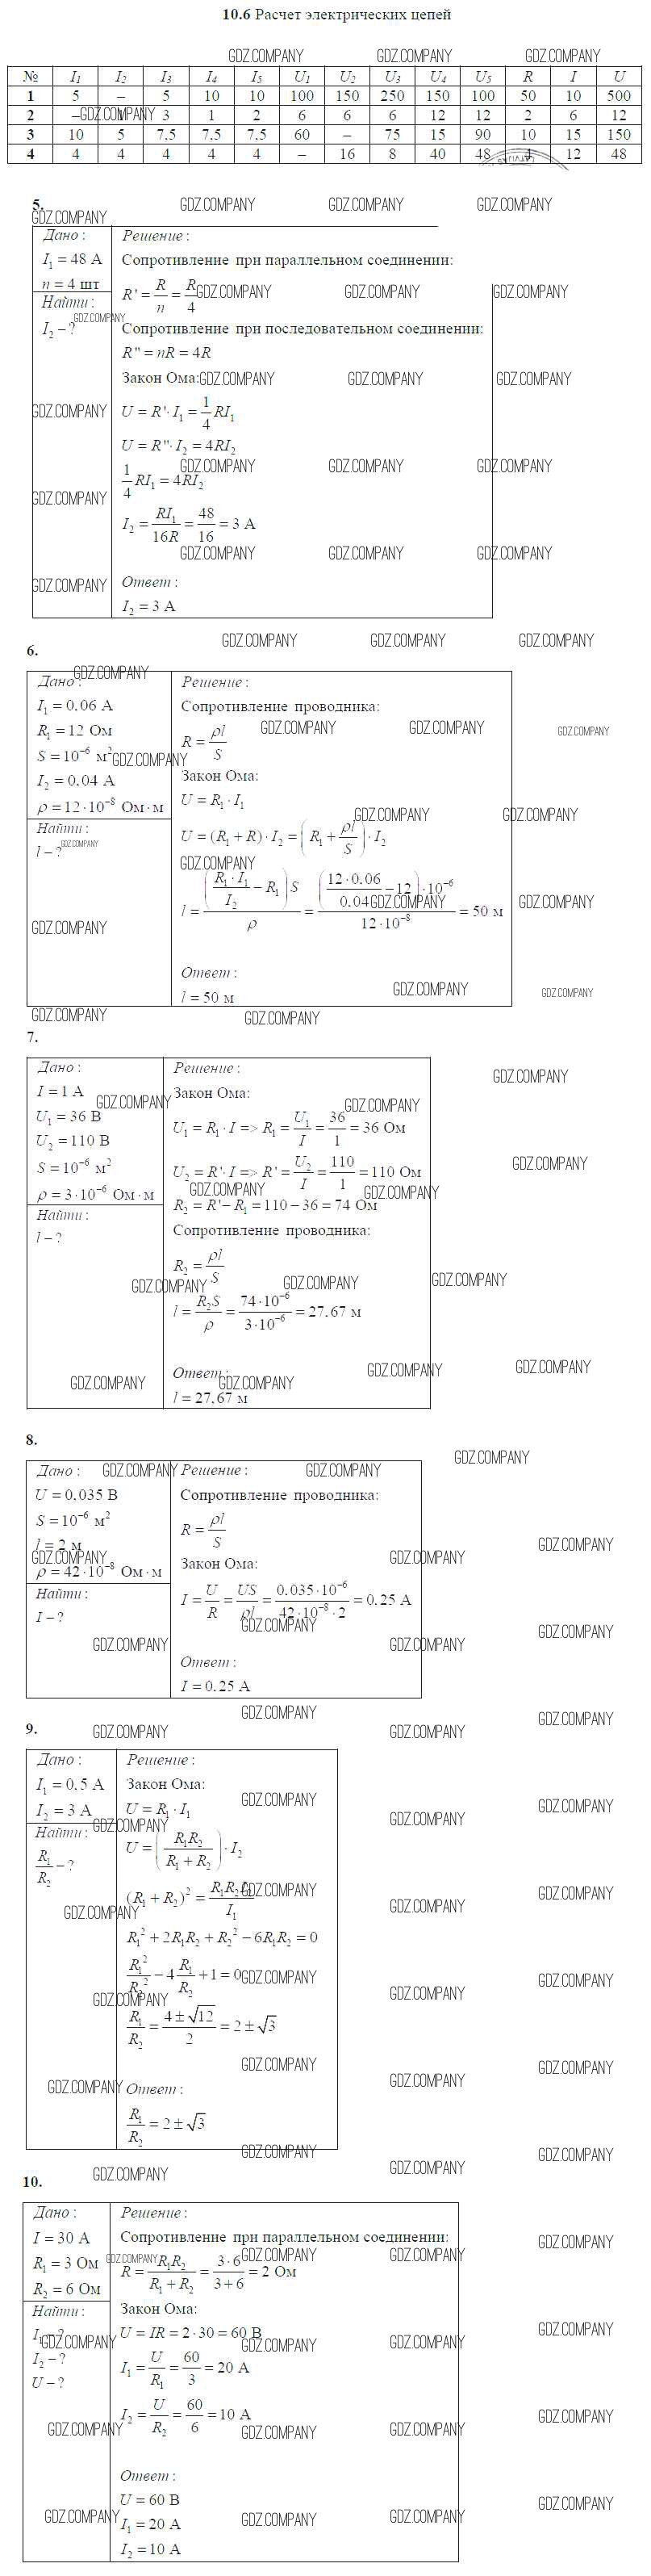 10.6 Расчет электрических цепей
GDZ.COMPANY GDZ.COMPANY GDZ.COMPANY
№ I₁ I₂ I₃ I₄ I₅ U₁ U₂ U₃ U₄ U₅ R I U
1 5 – 5 10 10 100 150 250 150 100 50 10 500
2 – 1 3 1 2 6 6 6 12 12 2 6 12
3 10 5 7.5 7.5 7.5 60 – 75 15 90 10 15 150
4 4 4 4 4 4 – 16 8 40 48 4 12 48
5.
Дано :
I₁ = 48 А
n = 4 шт
Найти :
I₂ – ?
Решение :
Сопротивление при параллельном соединении:
R' = R/n = R/4
Сопротивление при последовательном соединении:
R" = nR = 4R
Закон Ома:
U = R'· I₁ = 1/4 RI₁
U = R"· I₂ = 4RI₂
1/4 RI₁ = 4RI₂
I₂ = RI₁/16R = 48/16 = 3 А
Ответ :
I₂ = 3 А
6.
Дано :
I₁ = 0.06 А
R₁ = 12 Ом
S = 10⁻⁶ м²
I₂ = 0.04 А
ρ = 12·10⁻⁸ Ом·м
Найти :
l – ?
Решение :
Сопротивление проводника:
R = ρl/S
Закон Ома:
U = R₁ · I₁
U = (R₁ + R)· I₂ = (R₁ + ρl/S)· I₂
l = (R₁ · I₁/I₂ – R₁)S/ρ = (12·0.06/0.04 – 12)·10⁻⁶/12·10⁻⁸ = 50 м
Ответ :
l = 50 м
7.
Дано :
I = 1 А
U₁ = 36 В
U₂ = 110 В
S = 10⁻⁶ м²
ρ = 3·10⁻⁶ Ом·м
Найти :
l – ?
Решение :
Закон Ома:
U₁ = R₁ · I => R₁ = U₁/I = 36/1 = 36 Ом
U₂ = R'· I => R' = U₂/I = 110/1 = 110 Ом
R₂ = R' – R₁ = 110 – 36 = 74 Ом
Сопротивление проводника:
R₂ = ρl/S
l = R₂S/ρ = 74·10⁻⁶/3·10⁻⁶ = 27.67 м
Ответ :
l = 27,67 м
8.
Дано :
U = 0,035 В
S = 10⁻⁶ м²
l = 2 м
ρ = 42·10⁻⁸ Ом·м
Найти :
I – ?
Решение :
Сопротивление проводника:
R = ρl/S
Закон Ома:
I = U/R = US/ρl = 0.035·10⁻⁶/42·10⁻⁸·2 = 0.25 А
Ответ :
I = 0.25 А
9.
Дано :
I₁ = 0,5 А
I₂ = 3 А
Найти :
R₁/R₂ – ?
Решение :
Закон Ома:
U = R₁ · I₁
U = (R₁R₂/R₁ + R₂)· I₂
(R₁ + R₂)² = R₁R₂I₂/I₁
R₁² + 2R₁R₂ + R₂² – 6R₁R₂ = 0
R₁²/R₂² – 4 R₁/R₂ + 1 = 0
R₁/R₂ = 4 ± √12/2 = 2 ± √3
Ответ :
R₁/R₂ = 2 ± √3
10.
Дано :
I = 30 А
R₁ = 3 Ом
R₂ = 6 Ом
Найти :
I₁ – ?
I₂ – ?
U – ?
Решение :
Сопротивление при параллельном соединении:
R = R₁R₂/R₁ + R₂ = 3·6/3+6 = 2 Ом
Закон Ома:
U = IR = 2·30 = 60 В
I₁ = U/R₁ = 60/3 = 20 А
I₂ = U/R₂ = 60/6 = 10 А
Ответ :
U = 60 В
I₁ = 20 А
I₂ = 10 А